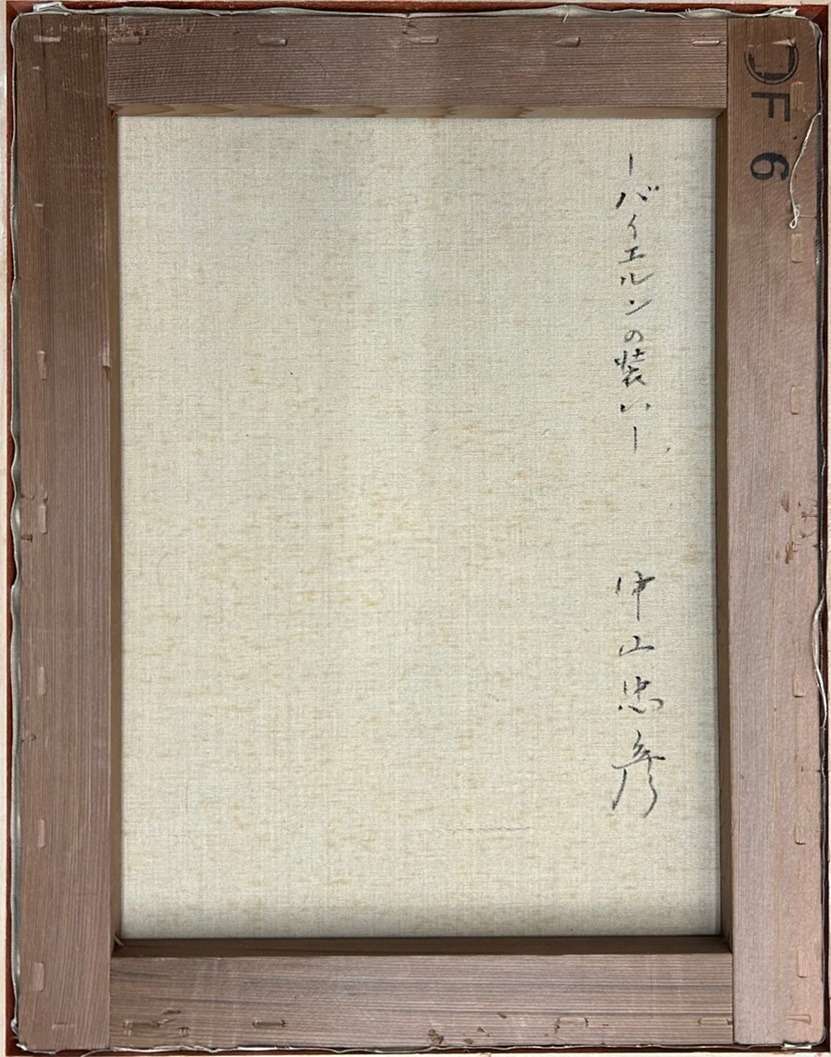 F6
ーバイエルンの装いー
中山忠彦